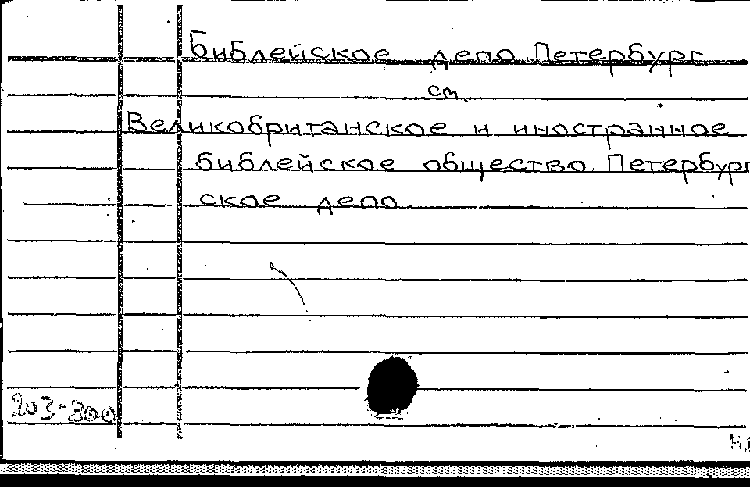 Библейское депо Петербург
см.
Великобританское и иностранное
библейское общество. Петербург
ское депо.
203-300